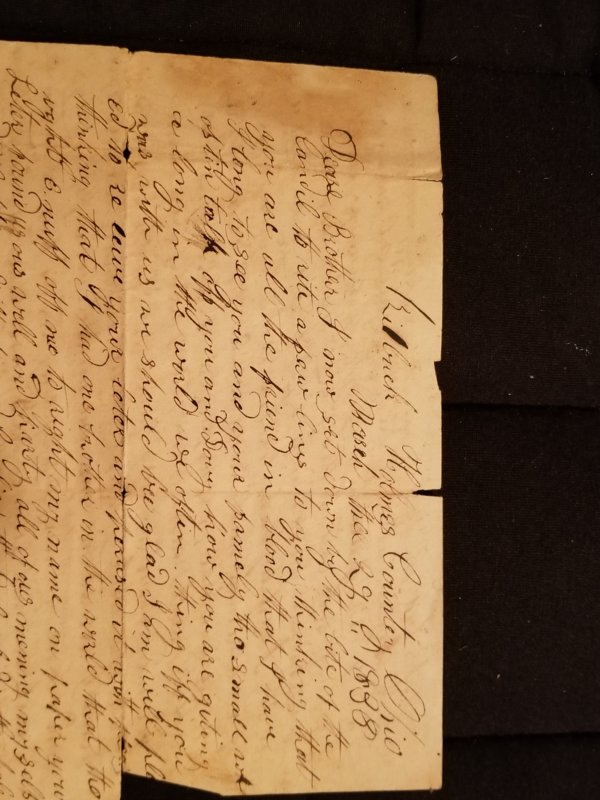 Killbuck Homes Countey Ohio
March the 29 D 1838
Dear Brother I now set down by the lite of the
Candil to rite a faw lines to you thinking that
you are all the friend in blood that I have
I long to see you and your famely tho small we
often talk off you and Davy how you are giting
a long in the world we often thing off you
was with us we should be glad I am well ple
ed to re ceive your leter and
thinking that I had one brother in the world that tho
ught e nuff off me to right my name on paper your
Leter found us ous well and harty all of us mening my self